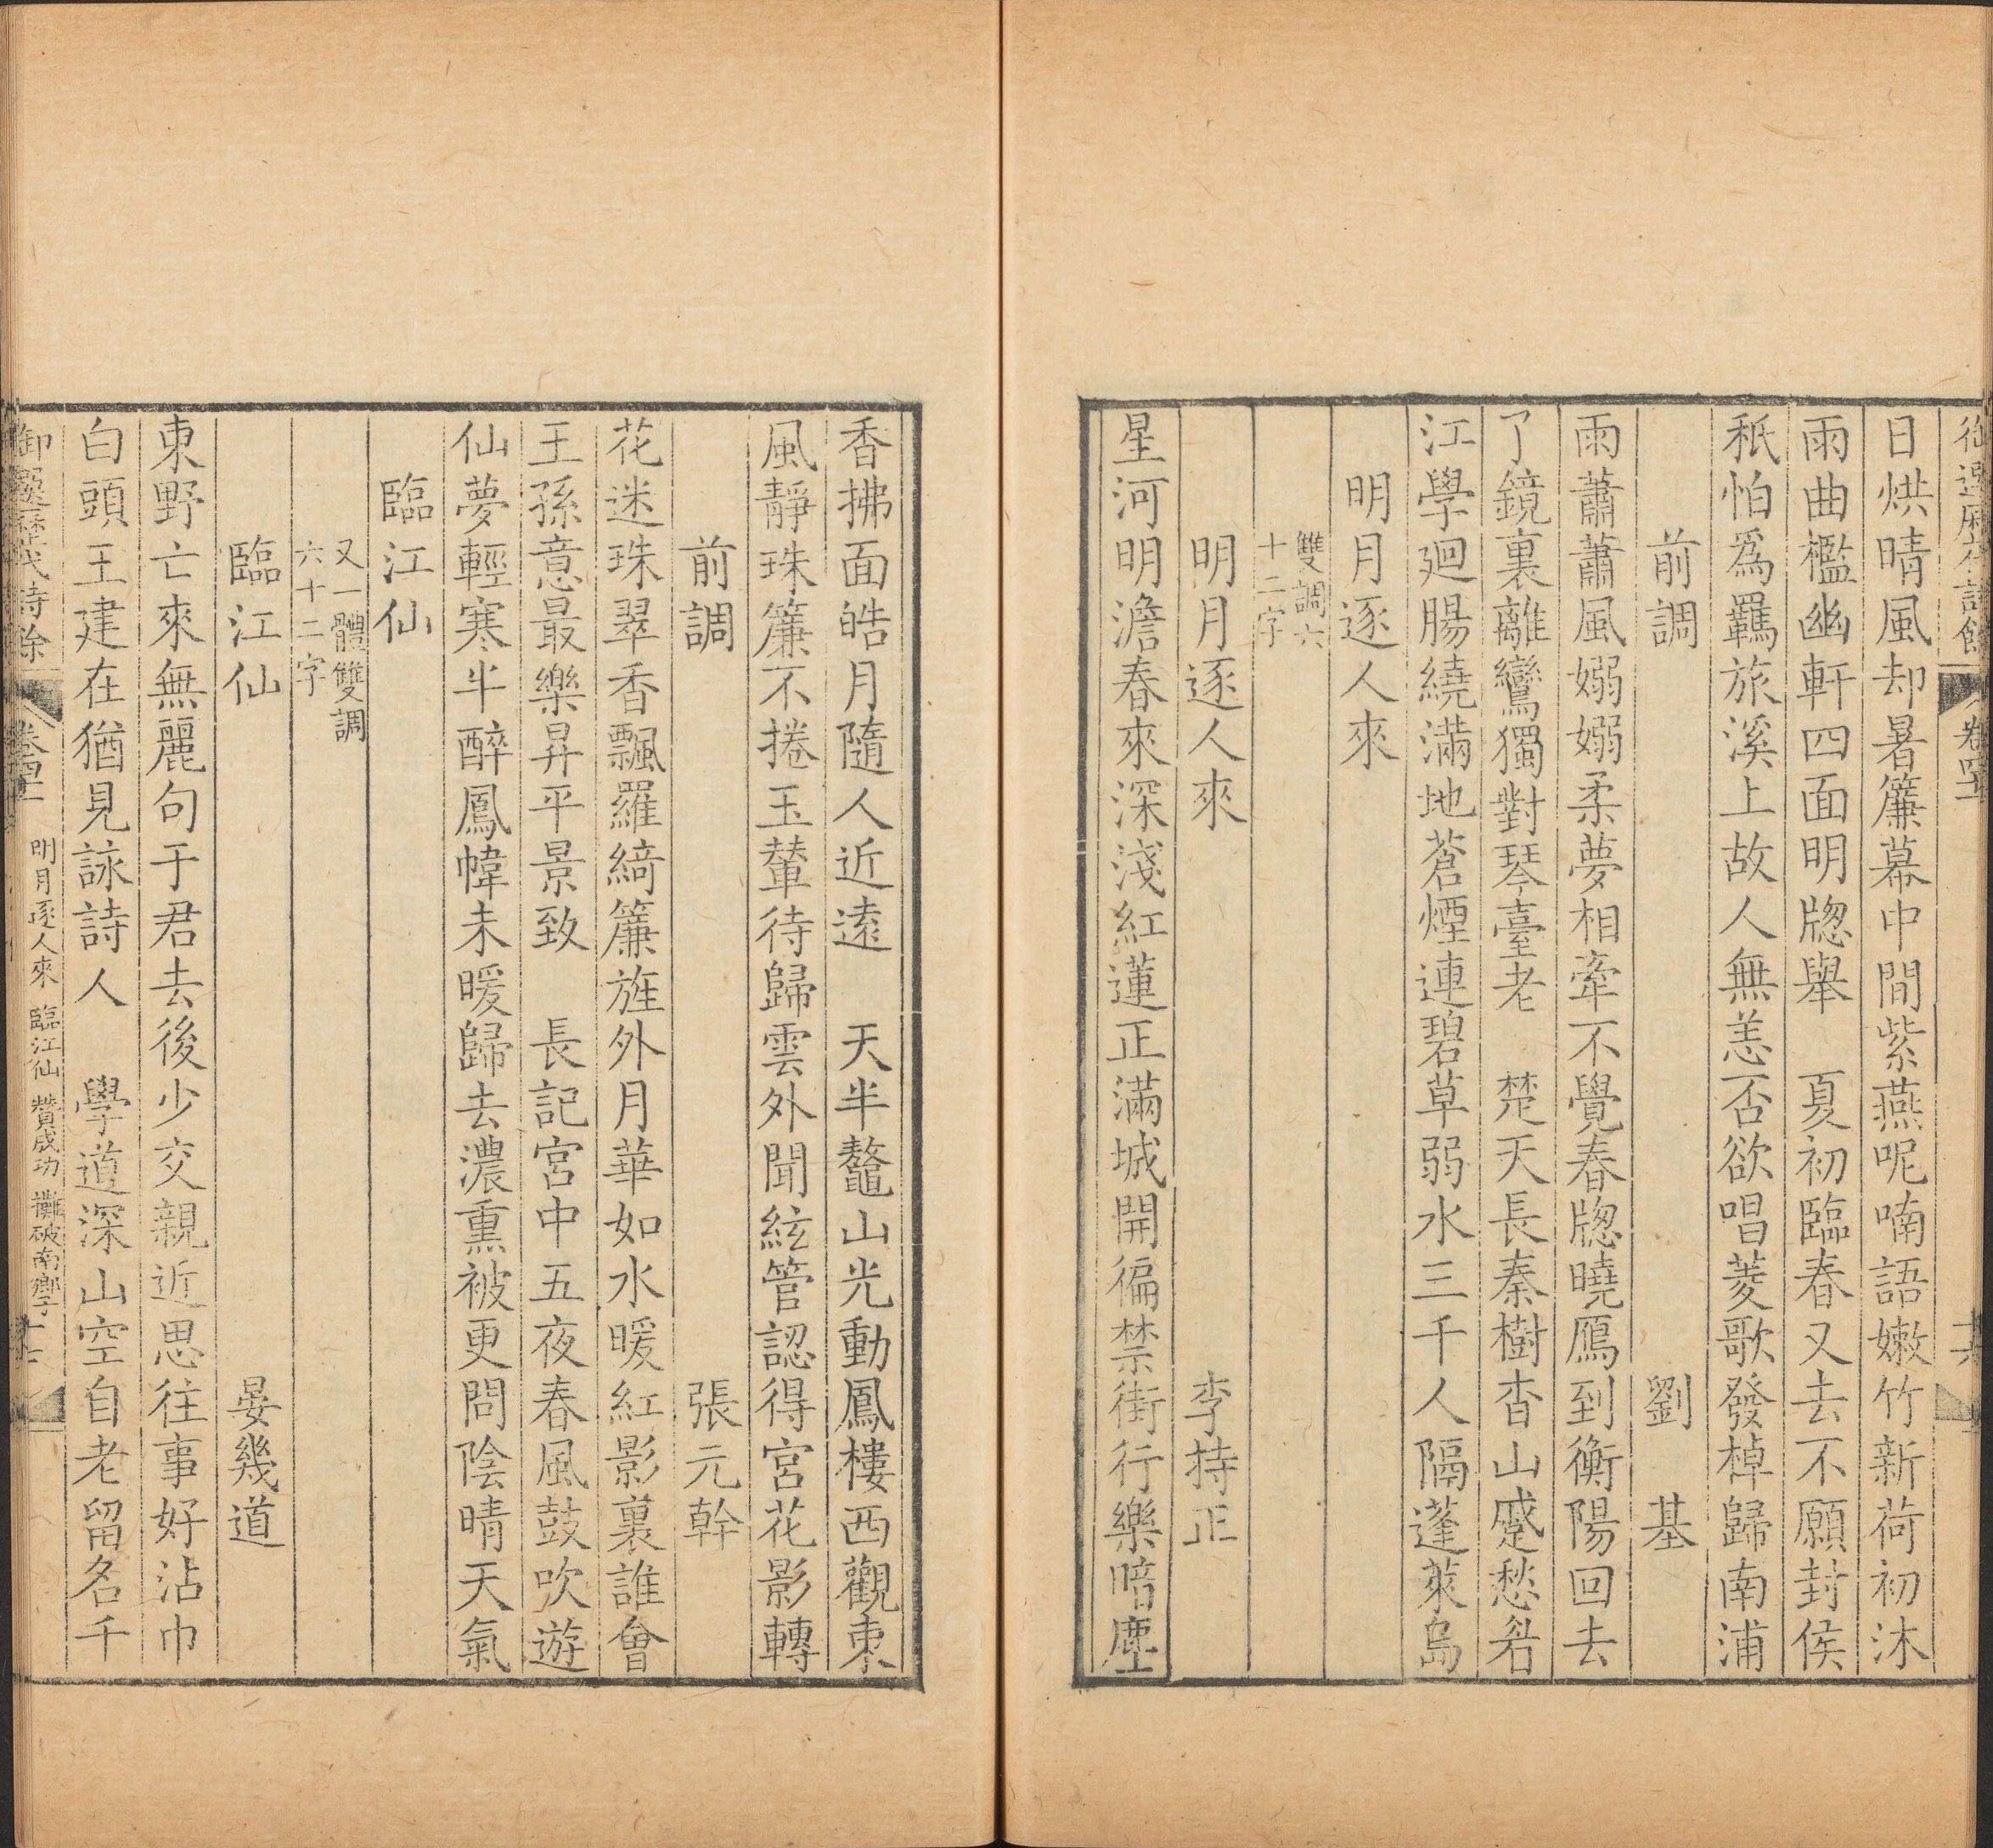 御選歷代詩餘 卷四十 十六
日烘晴風却暑簾幕中間紫燕呢喃語嫩竹新荷初沐
雨曲檻幽軒四面明牕舉　夏初臨春又去不願封侯
秖怕為羈旅溪上故人無恙否欲唱菱歌發棹歸南浦
前調　劉　基
雨蕭蕭風嫋嫋柔夢相牽不覺春牕曉鴈到衡陽回去
了鏡裏離鸞獨對琴臺老　楚天長秦樹杳山蹙愁眉
江學廻腸繞滿地蒼煙連碧草弱水三千人隔蓬萊島
明月逐人來
雙調六
十二字
明月逐人來　李持正
星河明澹春來深淺紅蓮正滿城開徧禁街行樂暗塵
香拂面皓月隨人近遠　天半鼇山光動鳳樓西觀東
風靜珠簾不捲玉輦待歸雲外聞絃管認得宮花影轉
前調　張元幹
花迷珠翠香飄羅綺簾旌外月華如水暖紅影裏誰會
王孫意最樂昇平景致　長記宮中五夜春風鼓吹遊
仙夢輕寒半醉鳳幃未暖歸去濃熏被更問陰晴天氣
臨江仙
又一體雙調
六十二字
臨江仙　晏幾道
東野亡來無麗句于君去後少交親近思往事好沾巾
白頭王建在猶見詠詩人　學道深山空自老留名千
御選歷代詩餘 卷四十 明月逐人來 臨江仙 贊成功 攤破南鄉子 十七